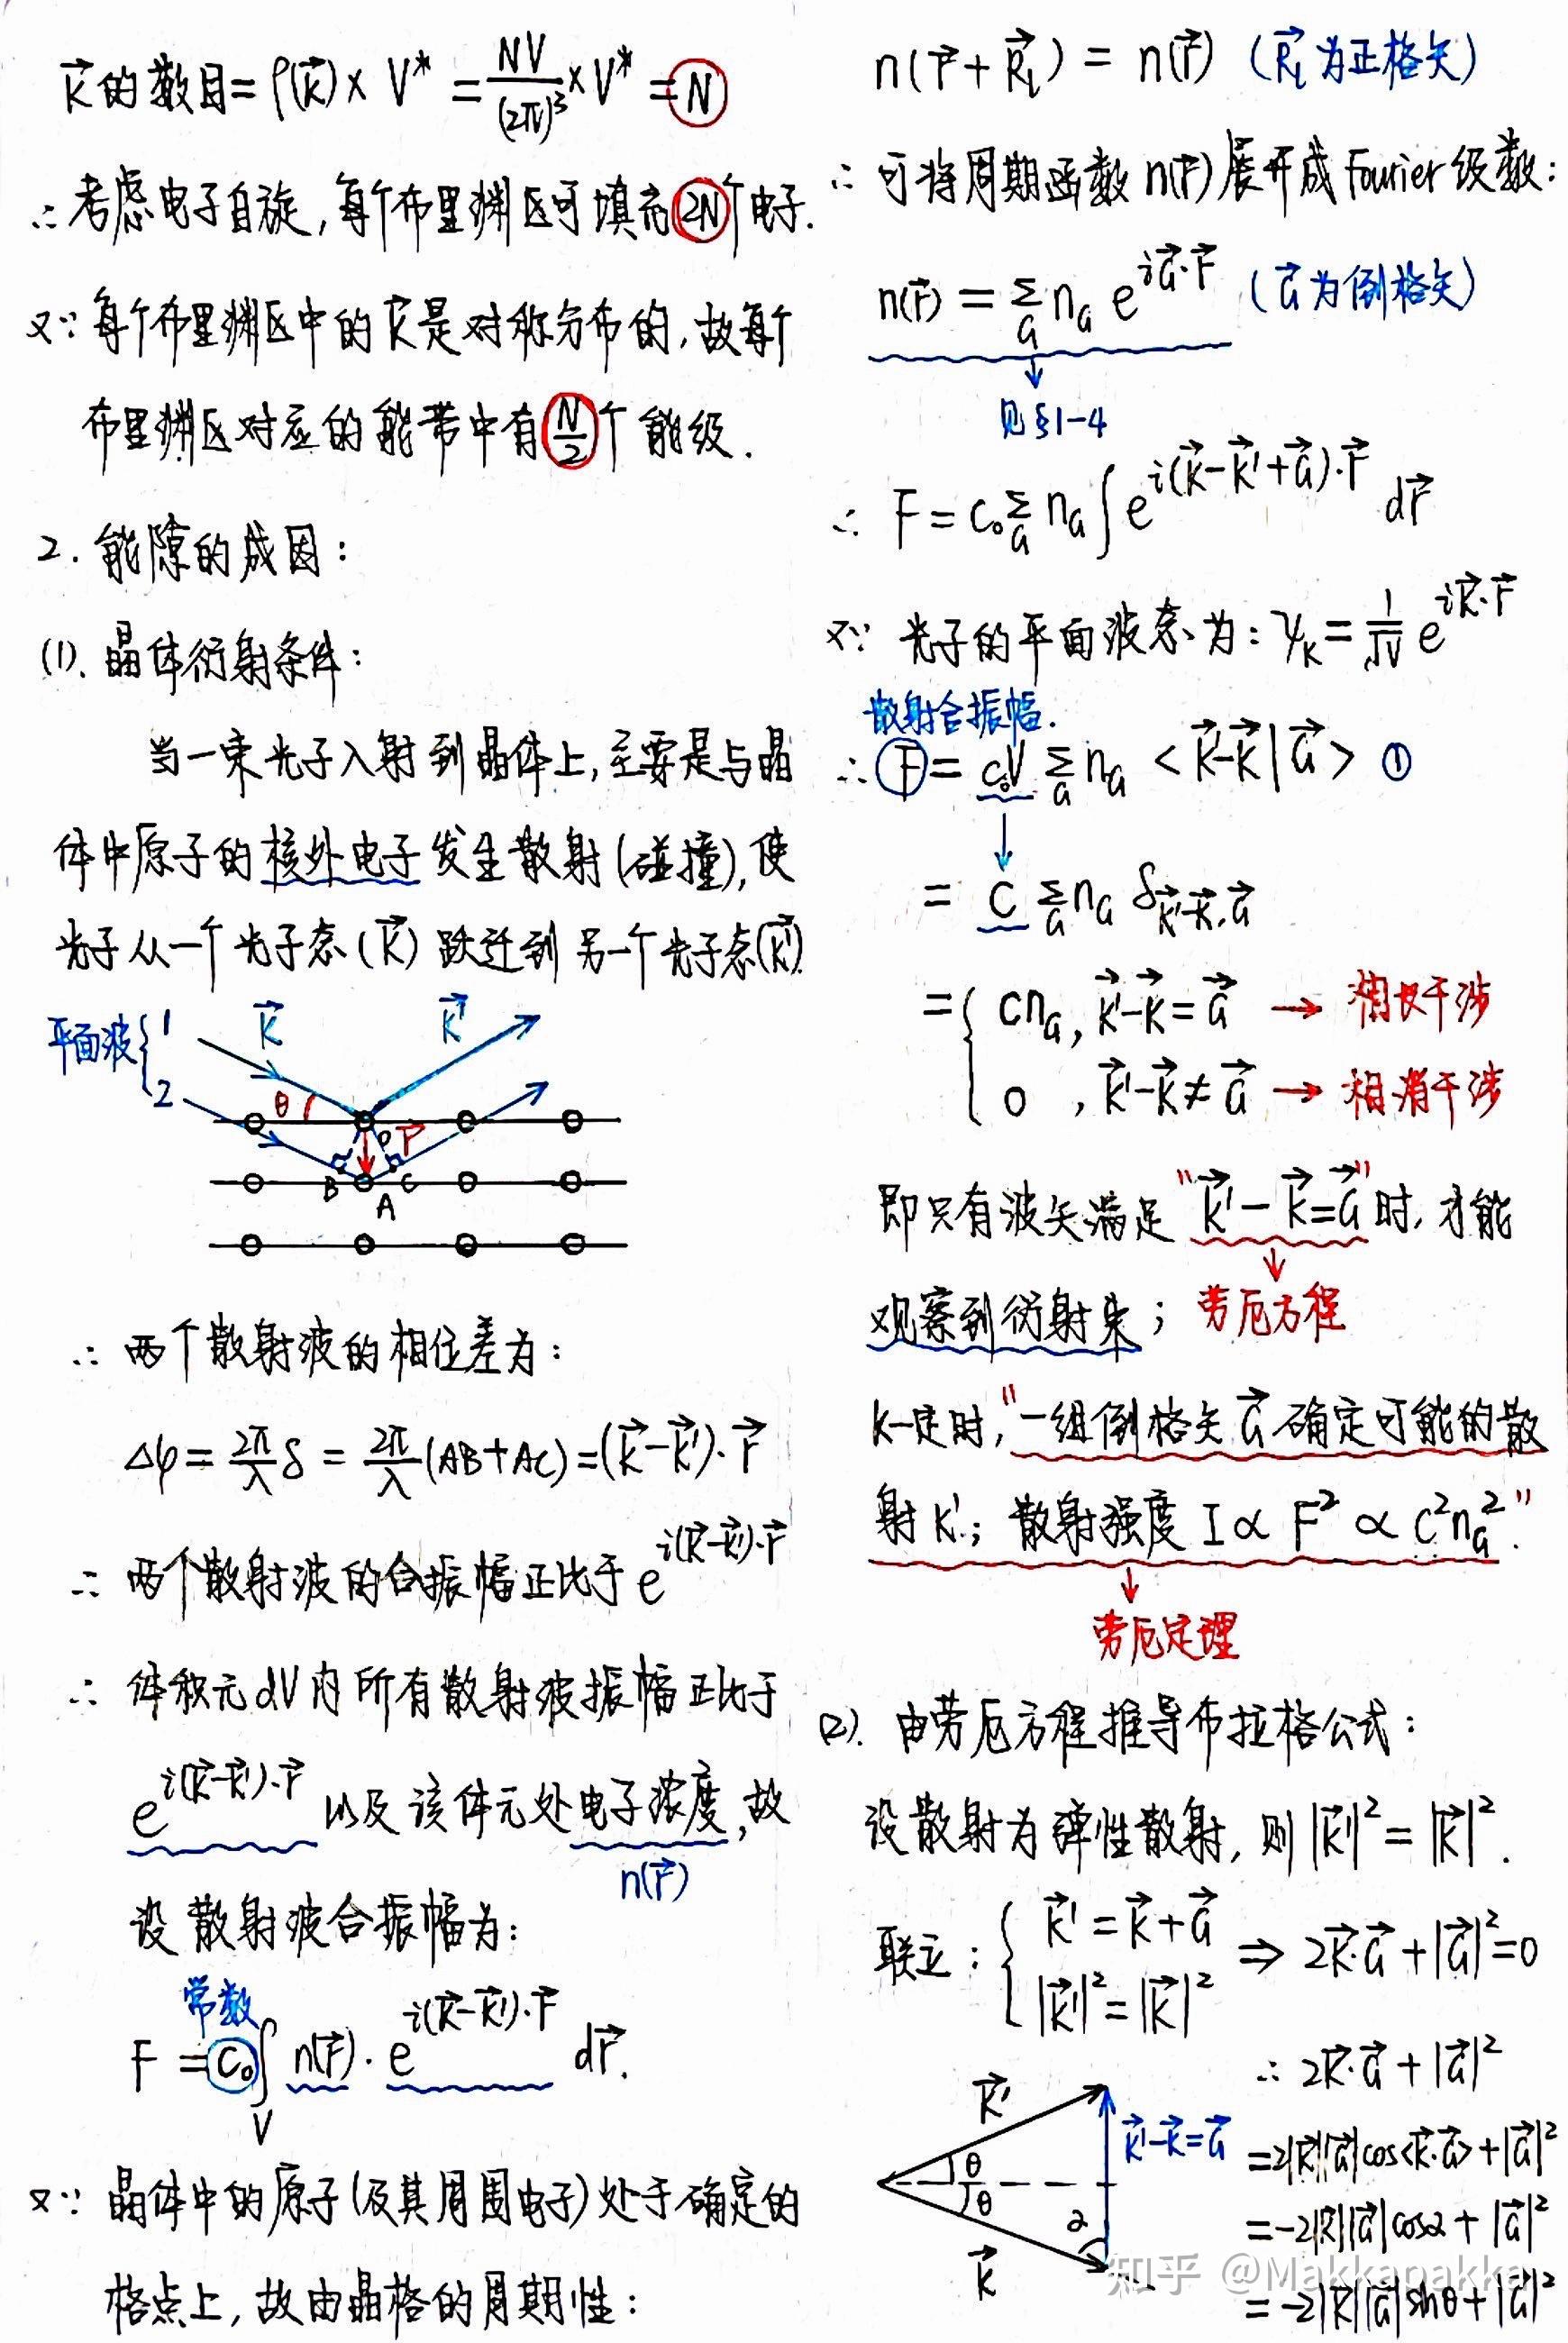 k⃗的数目=ρ(k⃗)×V*=NV/(2π)³×V*=N
∴考虑电子自旋,每个布里渊区可填充2N个电子.
又∵每个布里渊区中的k⃗是对称分布的,故每个
布里渊区对应的能带中有N/2个能级.
2.能隙的成因:
(1).晶体衍射条件:
当一束光子入射到晶体上,主要是与晶
体中原子的核外电子发生散射(碰撞),使
光子从一个光子态(k⃗)跃迁到另一个光子态(k⃗').
平面波{1 2
k⃗ k⃗'
θ O r⃗
B A C
∴两个散射波的相位差为:
Δφ=2π/λ δ=2π/λ(AB+AC)=(k⃗-k⃗')·r⃗
∴两个散射波的合振幅正比于e^{i(k⃗-k⃗')·r⃗}
∴体积元dV内所有散射波振幅正比于
e^{i(k⃗-k⃗')·r⃗}以及该体元处电子浓度,故
n(r⃗)
设散射波合振幅为:
常数
F=c₀∫_V n(r⃗)·e^{i(k⃗-k⃗')·r⃗} dr⃗.
又∵晶体中的原子(及其周围电子)处于确定的
格点上,故由晶格的周期性:
n(r⃗+R⃗_l)=n(r⃗) (R⃗_l为正格矢)
∴可将周期函数n(r⃗)展开成Fourier级数:
n(r⃗)=Σ_G n_G e^{iG⃗·r⃗} (G⃗为倒格矢)
见§1-4
∴F=c₀Σ_G n_G∫e^{i(k⃗-k⃗'+G⃗)·r⃗} dr⃗
又∵光子的平面波态为:ψ_k=1/√V e^{ik⃗·r⃗}
散射合振幅.
∴F=c₀V Σ_G n_G <k⃗'-k⃗|G⃗> ①
=C Σ_G n_G δ_{k⃗'-k⃗,G⃗}
={Cn_G, k⃗'-k⃗=G⃗ → 相长干涉
0, k⃗'-k⃗≠G⃗ → 相消干涉
即只有波矢满足"k⃗'-k⃗=G⃗"时,才能
观察到衍射束; 劳厄方程
k一定时,"一组倒格矢G⃗确定可能的散
射k'; 散射强度I∝F²∝C²n_G²".
劳厄定理
(2).由劳厄方程推导布拉格公式:
设散射为弹性散射,则|k⃗'|²=|k⃗|².
联立:{k⃗'=k⃗+G⃗
|k⃗'|²=|k⃗|² ⇒ 2k⃗·G⃗+|G⃗|²=0
∴2k⃗·G⃗+|G⃗|²
=2|k⃗||G⃗|cos<k⃗·G⃗>+|G⃗|²
=-2|k⃗||G⃗|cosα+|G⃗|²
=-2|k⃗||G⃗|sinθ+|G⃗|²
k⃗'
k⃗'-k⃗=G⃗
θ
θ
α
k⃗
知乎 @Makkapakka